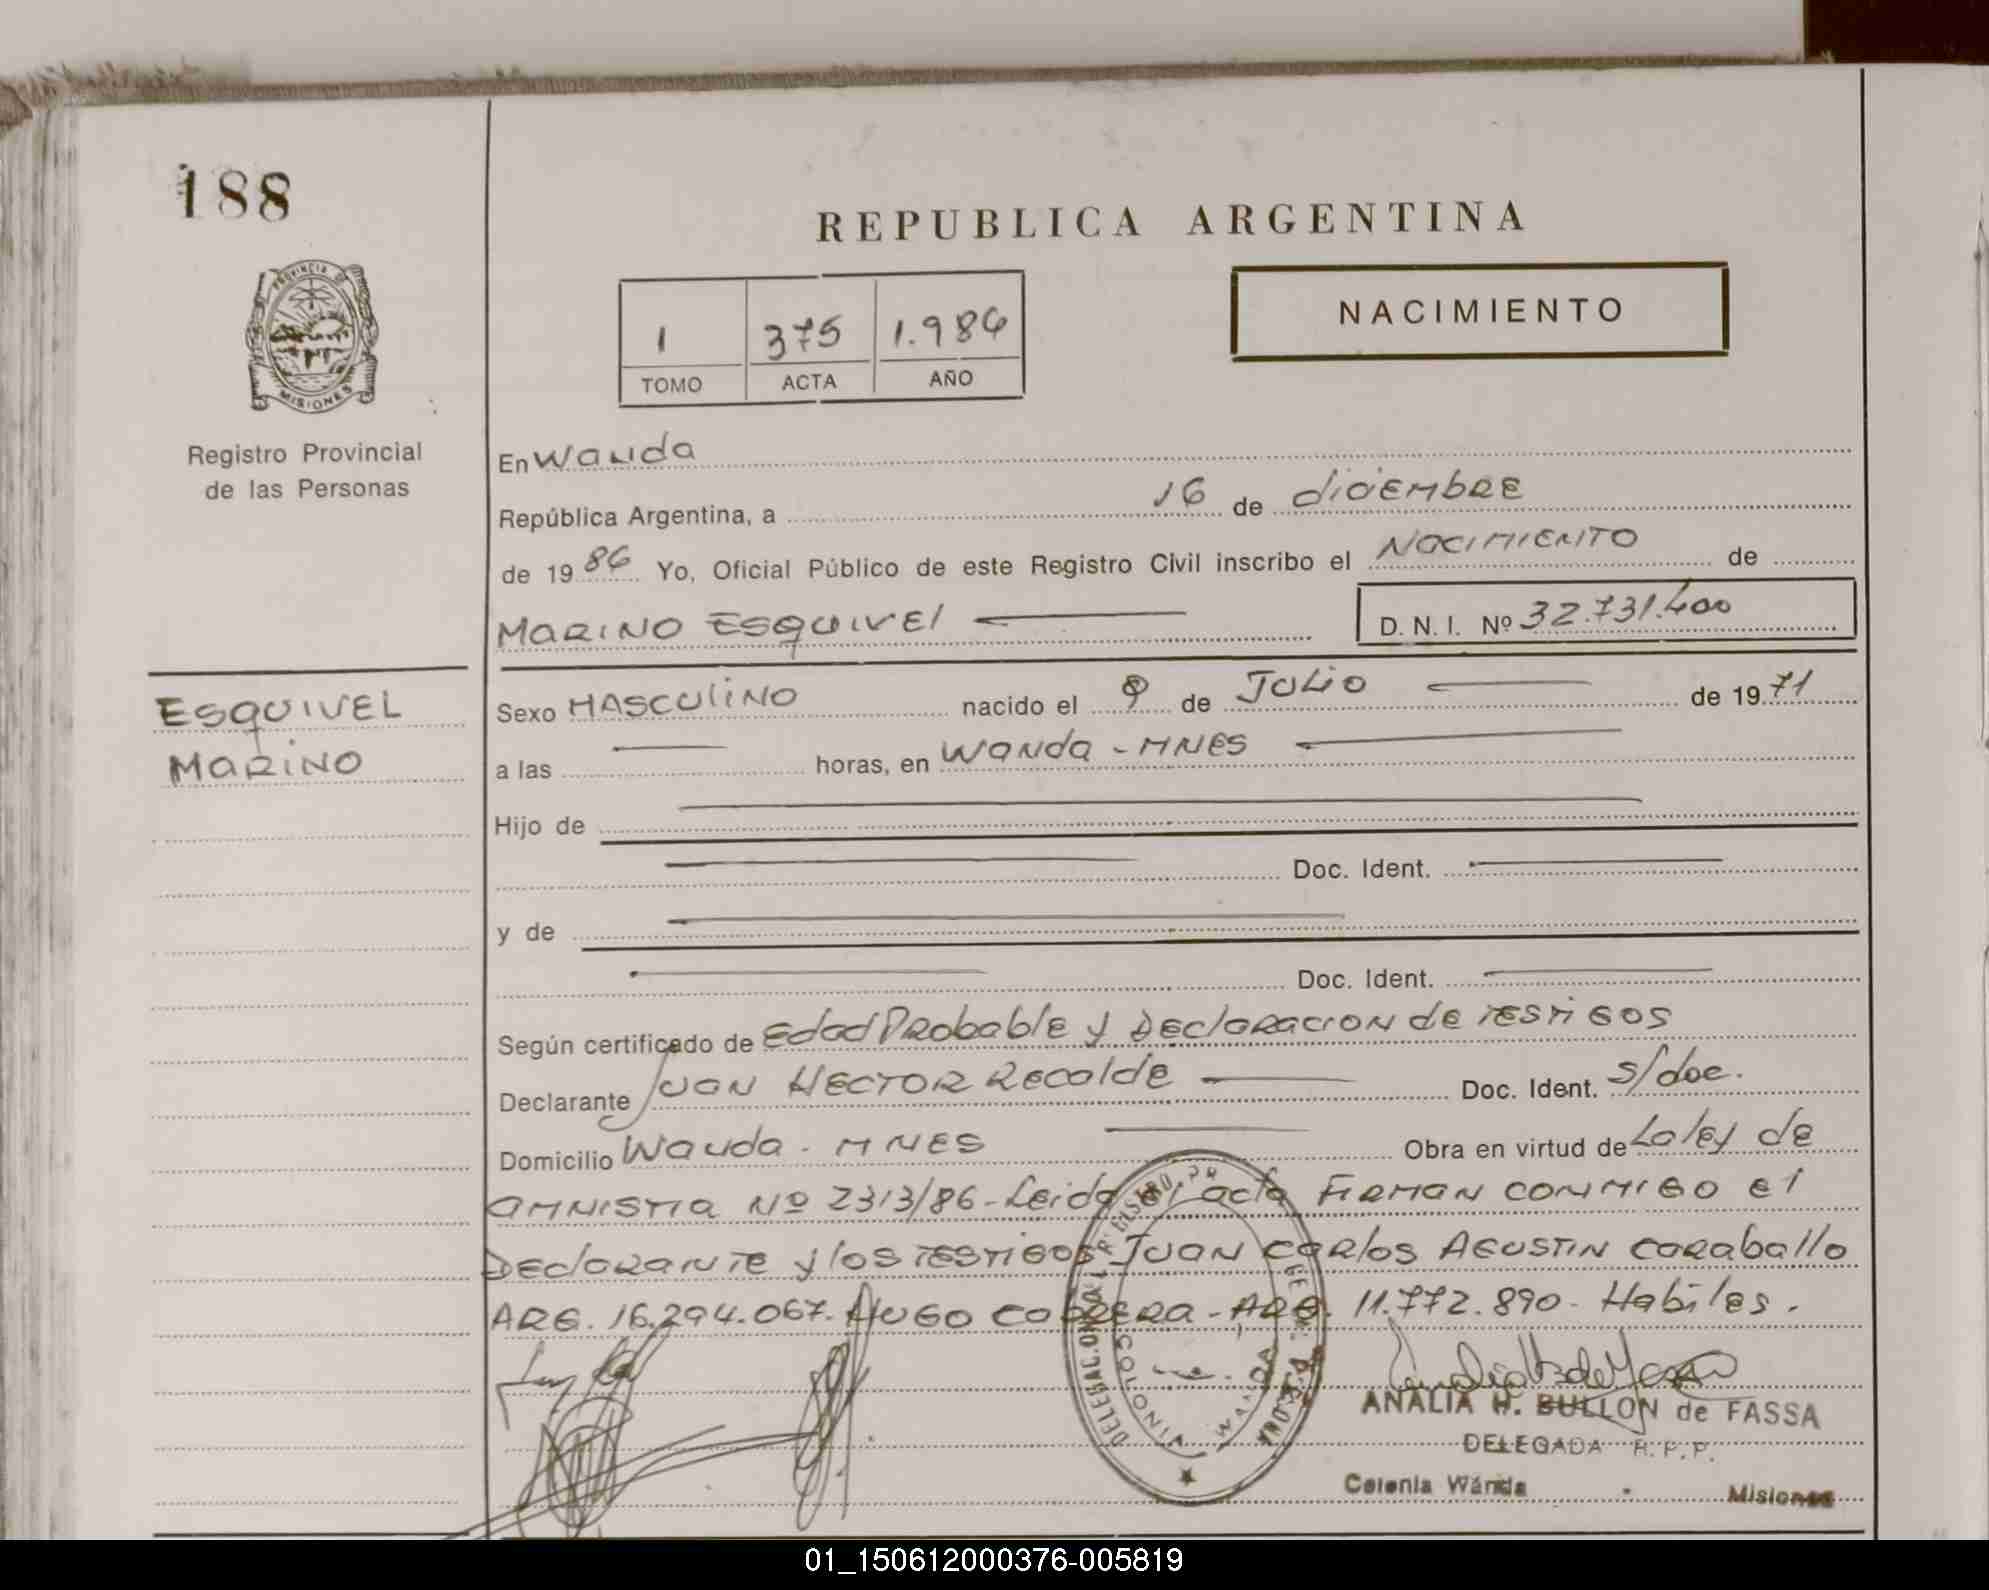 188
REPUBLICA ARGENTINA
PROVINCIA DE
MISIONES
Registro Provincial
de las Personas
1 375 1.986
TOMO ACTA AÑO
NACIMIENTO
En Wanda
República Argentina, a 16 de diciembre
de 1986 Yo, Oficial Público de este Registro Civil inscribo el Nacimiento de
Marino Esquivel D. N. I. Nº 32.731.400
Esquivel
Marino
Sexo Masculino nacido el 9 de Julio de 1971
a las horas, en Wanda - Mnes
Hijo de
Doc. Ident.
y de
Doc. Ident.
Según certificado de Edad Probable y Declaracion de testigos
Declarante Juan Hector Recalde Doc. Ident. s/doc.
Domicilio Wanda - Mnes Obra en virtud de La ley de
amnistia Nº 2313/86 - Leida el acta Firman conmigo el
Declarante y los testigos Juan Carlos Agustin Caraballo
ARG. 16.294.067. Hugo Cabrera - ARG. 11.772.890 - Habiles.
WANDA
ANALIA H. BULLON de FASSA
DELEGADA R.P.P.
Colonia Wánda - Misiones
01_150612000376-005819